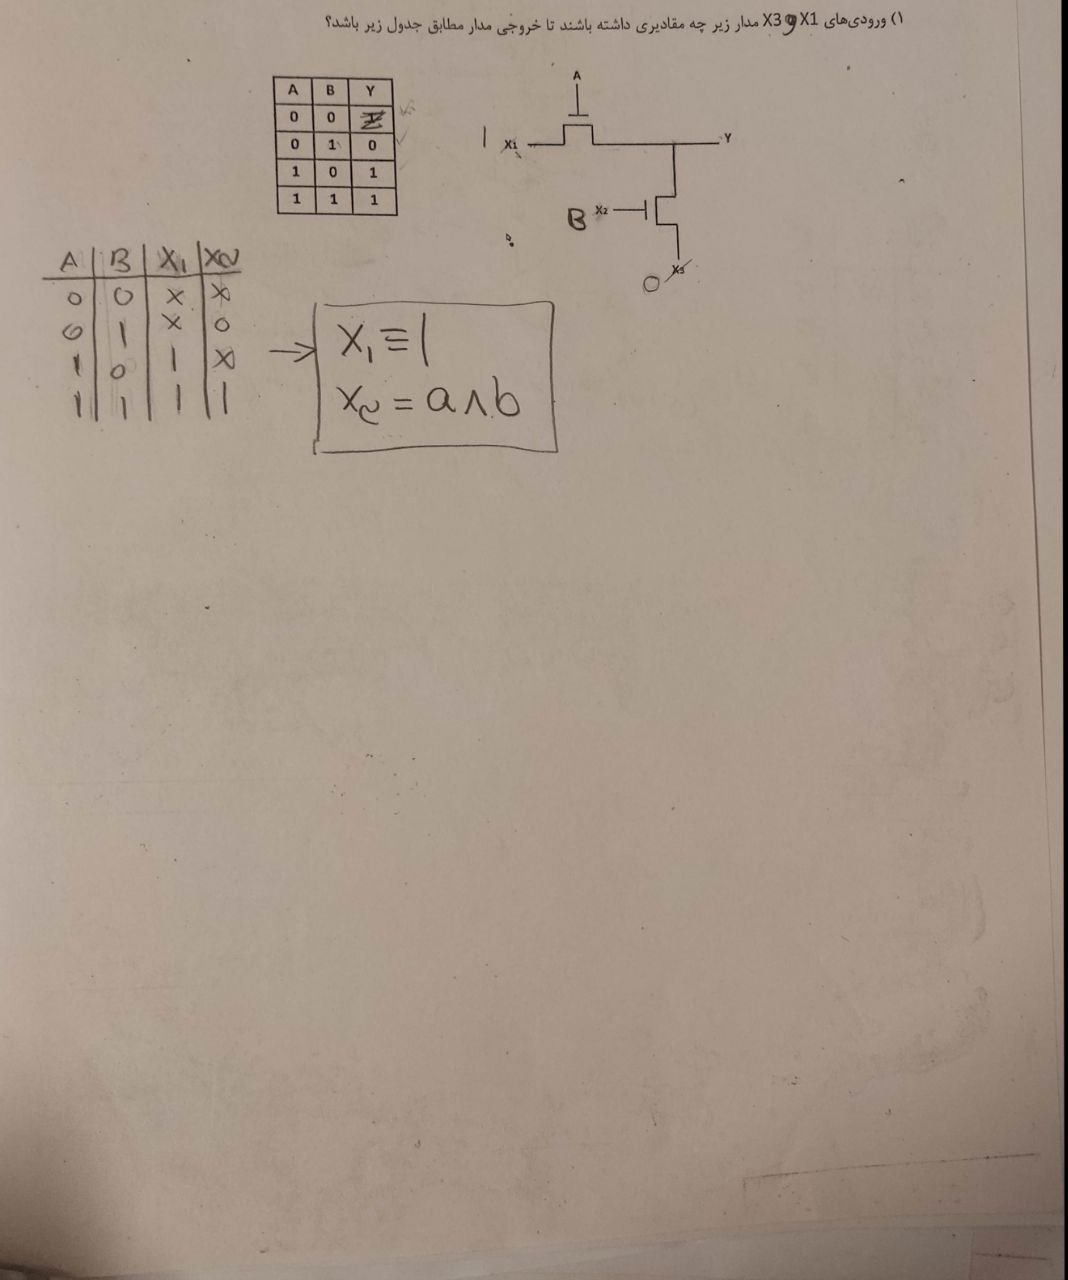 ۱) ورودی‌های X1 و X3 مدار زیر چه مقادیری داشته باشند تا خروجی مدار مطابق جدول زیر باشد؟
A B Y
0 0
0 1 0
1 0 1
1 1 1
A
1 X1 Y
B X2
0 X3
A B X₁ X۲
0 0 x x
0 1 x 0
1 0 1 x
1 1 1 1
→ X₁ ≡ 1
X۲ = a ∧ b